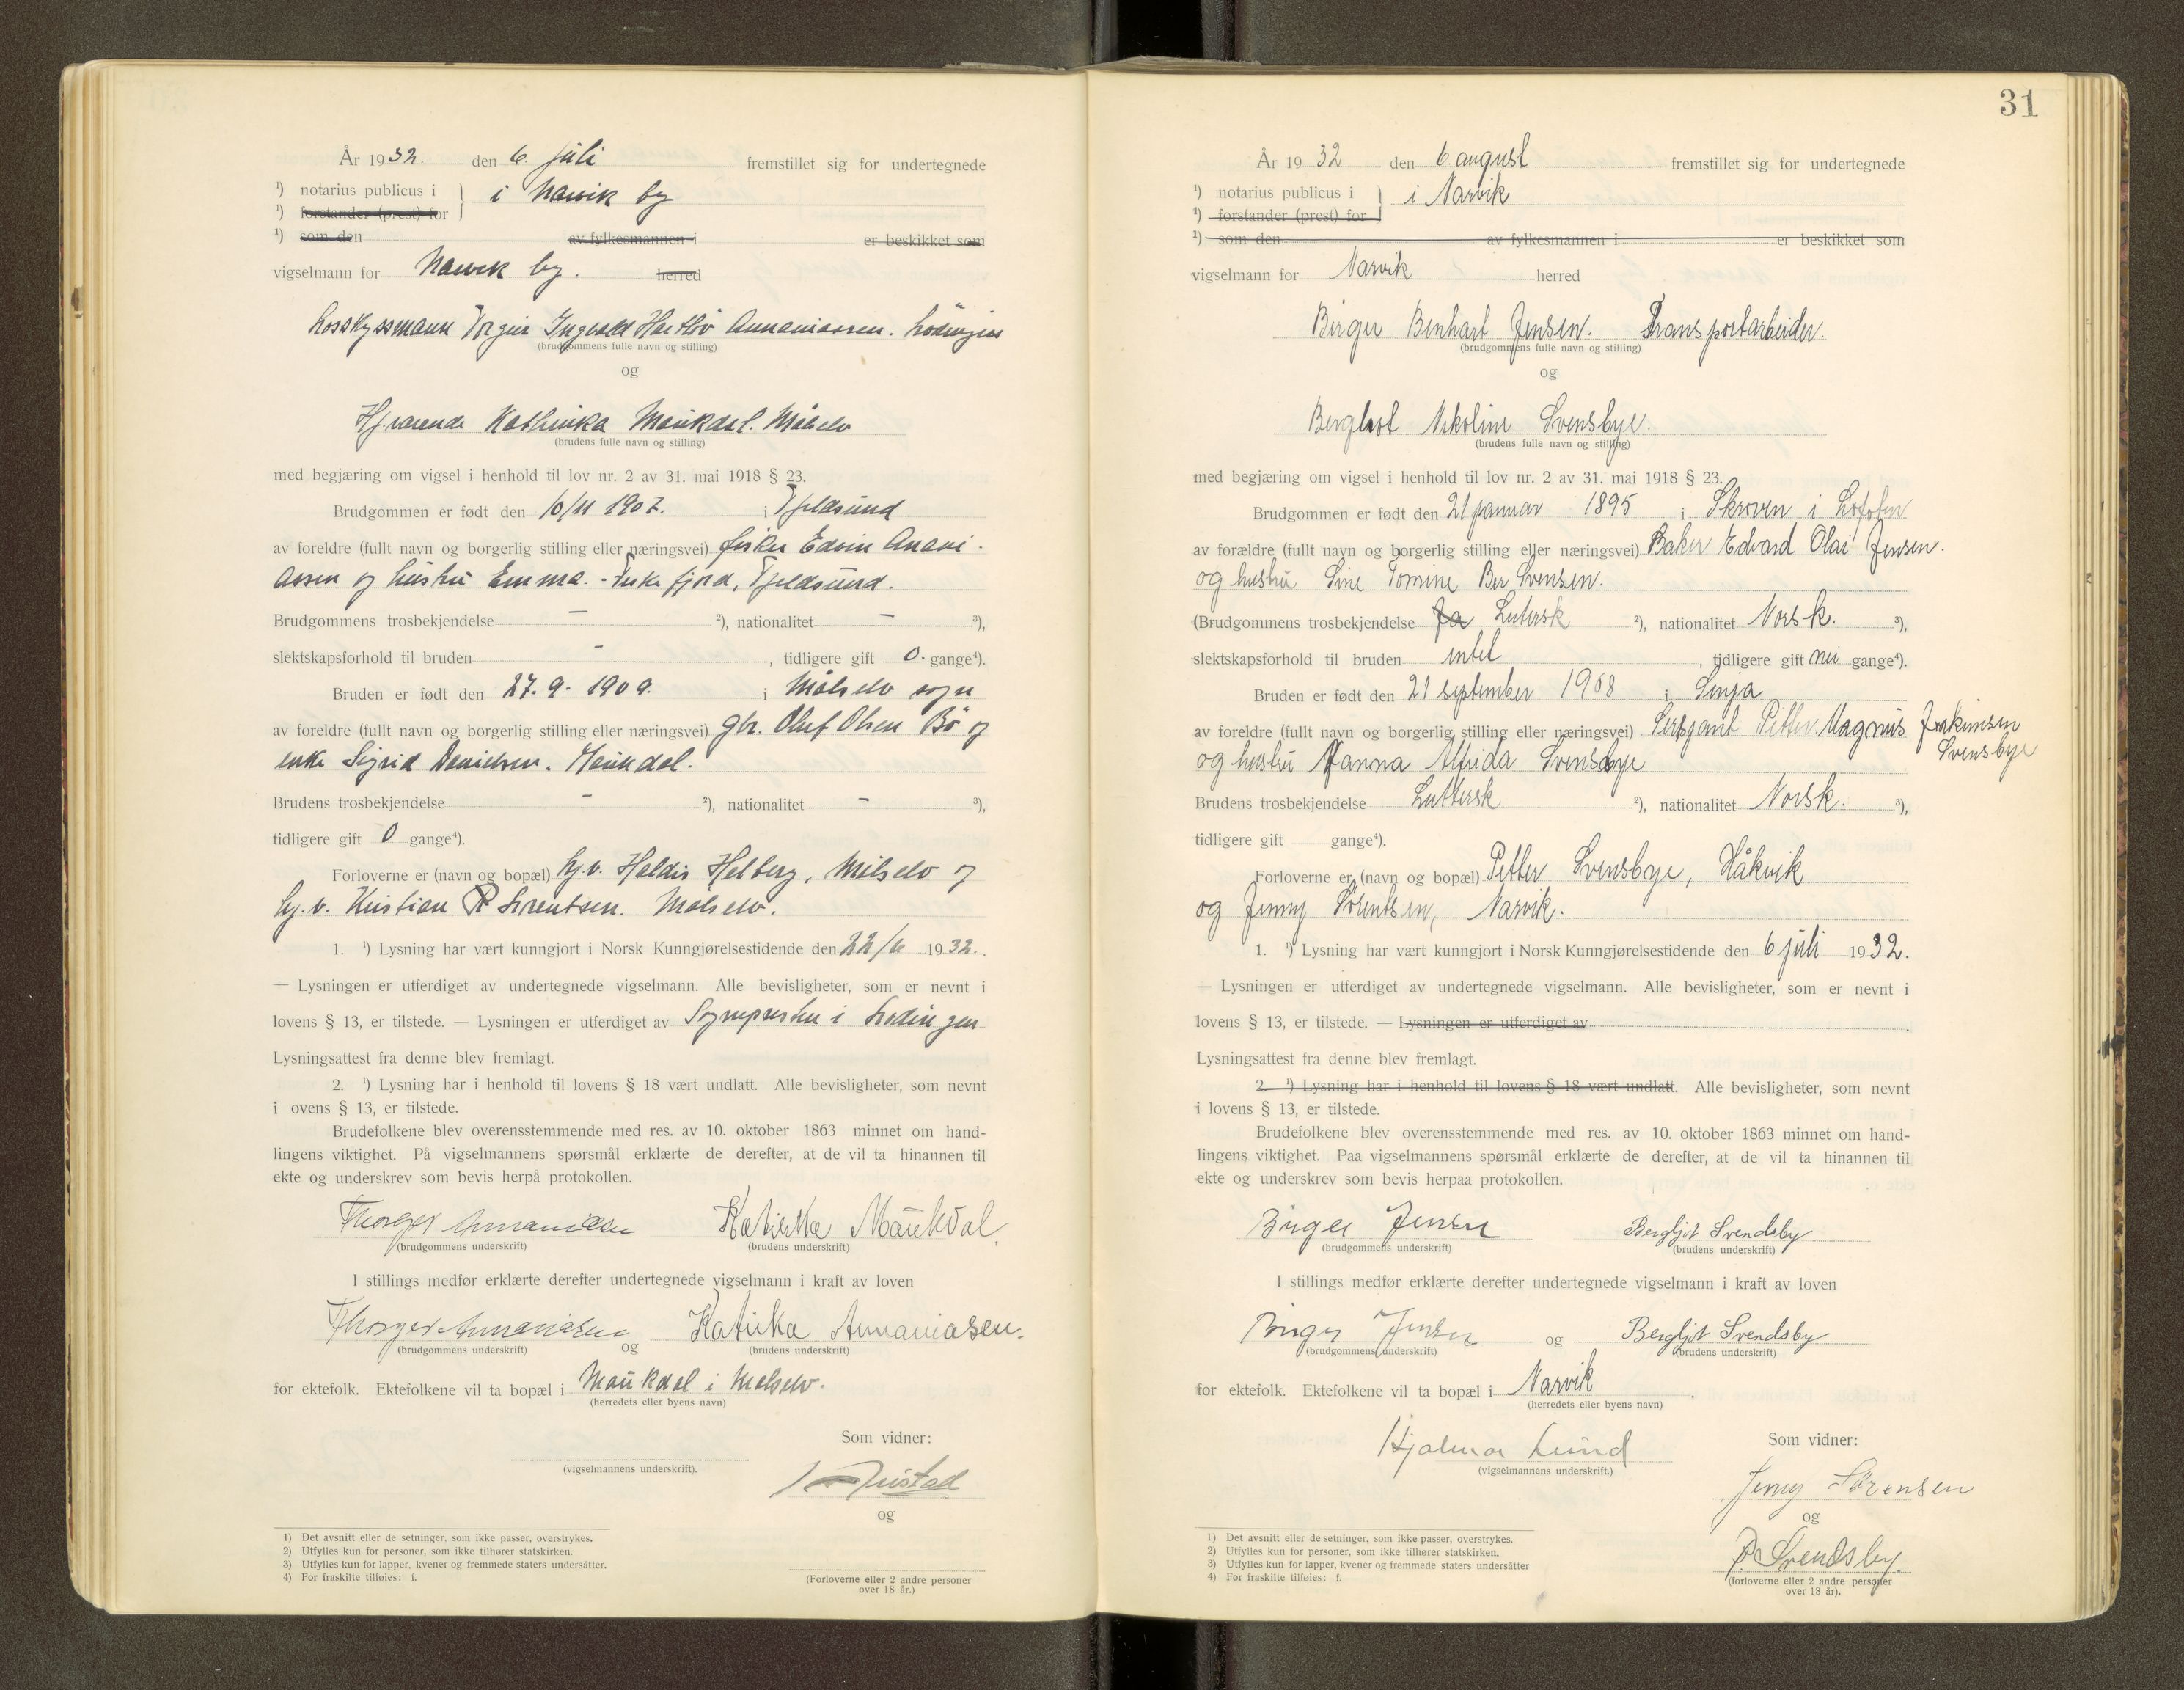 År 1932. den 6. juli fremstillet sig for undertegnede
¹) notarius publicus i } i Narvik by
¹) forstander (prest) for
¹) som den av fylkesmannen i er beskikket som
vigselmann for Narvik by. herred
Torgeir Ingvald Annaniassen. Lödingen
(brudgommens fulle navn og stilling)
og
Hj.værende Kathinka Maukdal. Målselv
(brudens fulle navn og stilling)
med begjæring om vigsel i henhold til lov nr. 2 av 31. mai 1918 § 23.
Brudgommen er født den 10/11 1907. i Tjeldsund
av foreldre (fullt navn og borgerlig stilling eller næringsvei) fisker Edvin Anani-
assen og hustru Emma. - fjord, Tjeldsund.
Brudgommens trosbekjendelse – ²), nationalitet – ³),
slektskapsforhold til bruden - , tidligere gift 0. gange⁴).
Bruden er født den 27. 9. 1909. i Målselv sogn
av foreldre (fullt navn og borgerlig stilling eller næringsvei) gbr. Oluf Olsen Bö og
enke Sigrid Danielsen. Maukdal.
Brudens trosbekjendelse – ²), nationalitet – ³),
tidligere gift 0 gange⁴).
Forloverne er (navn og bopæl) hj.v. Haldis Helberg, Målselv og
hj.v. Kristian R Lorentsen. Målselv.
1. ¹) Lysning har vært kunngjort i Norsk Kunngjørelsestidende den 22/6 1932.
— Lysningen er utferdiget av undertegnede vigselmann. Alle bevisligheter, som er nevnt i
lovens § 13, er tilstede. — Lysningen er utferdiget av Sognepresten i Lödingen
Lysningsattest fra denne blev fremlagt.
2. ¹) Lysning har i henhold til lovens § 18 vært undlatt. Alle bevisligheter, som nevnt
i ovens § 13, er tilstede.
Brudefolkene blev overensstemmende med res. av 10. oktober 1863 minnet om hand-
lingens viktighet. På vigselmannens spørsmål erklærte de derefter, at de vil ta hinannen til
ekte og underskrev som bevis herpå protokollen.
Thorger Annaniasen Katinka Maukdal.
(brudgommens underskrift) (brudens underskrift)
I stillings medfør erklærte derefter undertegnede vigselmann i kraft av loven
Thorger Annaniasen og Katinka Annaniasen.
(brudgommens underskrift) (brudens underskrift)
for ektefolk. Ektefolkene vil ta bopæl i Maukdal i Målselv.
(herredets eller byens navn)
Som vidner:
(vigselmannens underskrift).
og
1) Det avsnitt eller de setninger, som ikke passer, overstrykes.
2) Utfylles kun for personer, som ikke tilhører statskirken.
3) Utfylles kun for lapper, kvener og fremmede staters undersåtter.
4) For fraskilte tilføies: f.
(Forloverne eller 2 andre personer
over 18 år.)
31
År 1932 den 6 august fremstillet sig for undertegnede
¹) notarius publicus i } i Narvik
¹) forstander (prest) for
¹) som den av fylkesmannen i er beskikket som
vigselmann for Narvik herred
Birger Benhart Jensen. Transportarbeider.
(brudgommens fulle navn og stilling)
og
Bergliot Nikoline Svensbye.
(brudens fulle navn og stilling)
med begjæring om vigsel i henhold til lov nr. 2 av 31. mai 1918 § 23.
Brudgommen er født den 21 januar 1895 i Skroven i Lofoten
av forældre (fullt navn og borgerlig stilling eller næringsvei) Baker Edvard Olai Jensen.
og hustru Sine Tomine Ber Svensen.
(Brudgommens trosbekjendelse Ja Lutersk ²), nationalitet Norsk. ³),
slektskapsforhold til bruden intet , tidligere gift nei gange⁴).
Bruden er født den 21 september 1908 i Senja
av foreldre (fullt navn og borgerlig stilling eller næringsvei) Sersjant Petter Magnus Joakimsen
Svensbye
og hustru Nanna Alfrida Svensbye
Brudens trosbekjendelse Luttersk ²), nationalitet Norsk. ³),
tidligere gift gange⁴).
Forloverne er (navn og bopæl) Petter Svensbye, Håkvik
og Jenny Sörentsen, Narvik.
1. ¹) Lysning har vært kunngjort i Norsk Kunngjørelsestidende den 6 juli 1932.
— Lysningen er utferdiget av undertegnede vigselmann. Alle bevisligheter, som er nevnt i
lovens § 13, er tilstede. — Lysningen er utferdiget av .
Lysningsattest fra denne blev fremlagt.
2. ¹) Lysning har i henhold til lovens § 18 vært undlatt. Alle bevisligheter, som nevnt
i lovens § 13, er tilstede.
Brudefolkene blev overensstemmende med res. av 10. oktober 1863 minnet om hand-
lingens viktighet. Paa vigselmannens spørsmål erklærte de derefter, at de vil ta hinannen til
ekte og underskrev som bevis herpaa protokollen.
Birger Jensen Bergljot Svendsby
(brudgommens underskrift) (brudens underskrift)
I stillings medfør erklærte derefter undertegnede vigselmann i kraft av loven
Birger Jensen og Bergljot Svendsby
(brudgommens underskrift) (brudens underskrift)
for ektefolk. Ektefolkene vil ta bopæl i Narvik .
(herredets eller byens navn)
Hjalmar Lund
(vigselmannens underskrift.)
Som vidner:
Jenny Sörensen
og
P. Svendsby.
(forloverne eller 2 andre personer
over 18 år).
1) Det avsnitt eller de setninger, som ikke passer, overstrykes.
2) Utfylles kun for personer, som ikke tilhører statskirken.
3) Utfylles kun for lapper, kvener og fremmede staters undersåtter
4) For fraskilte tilføies: f.